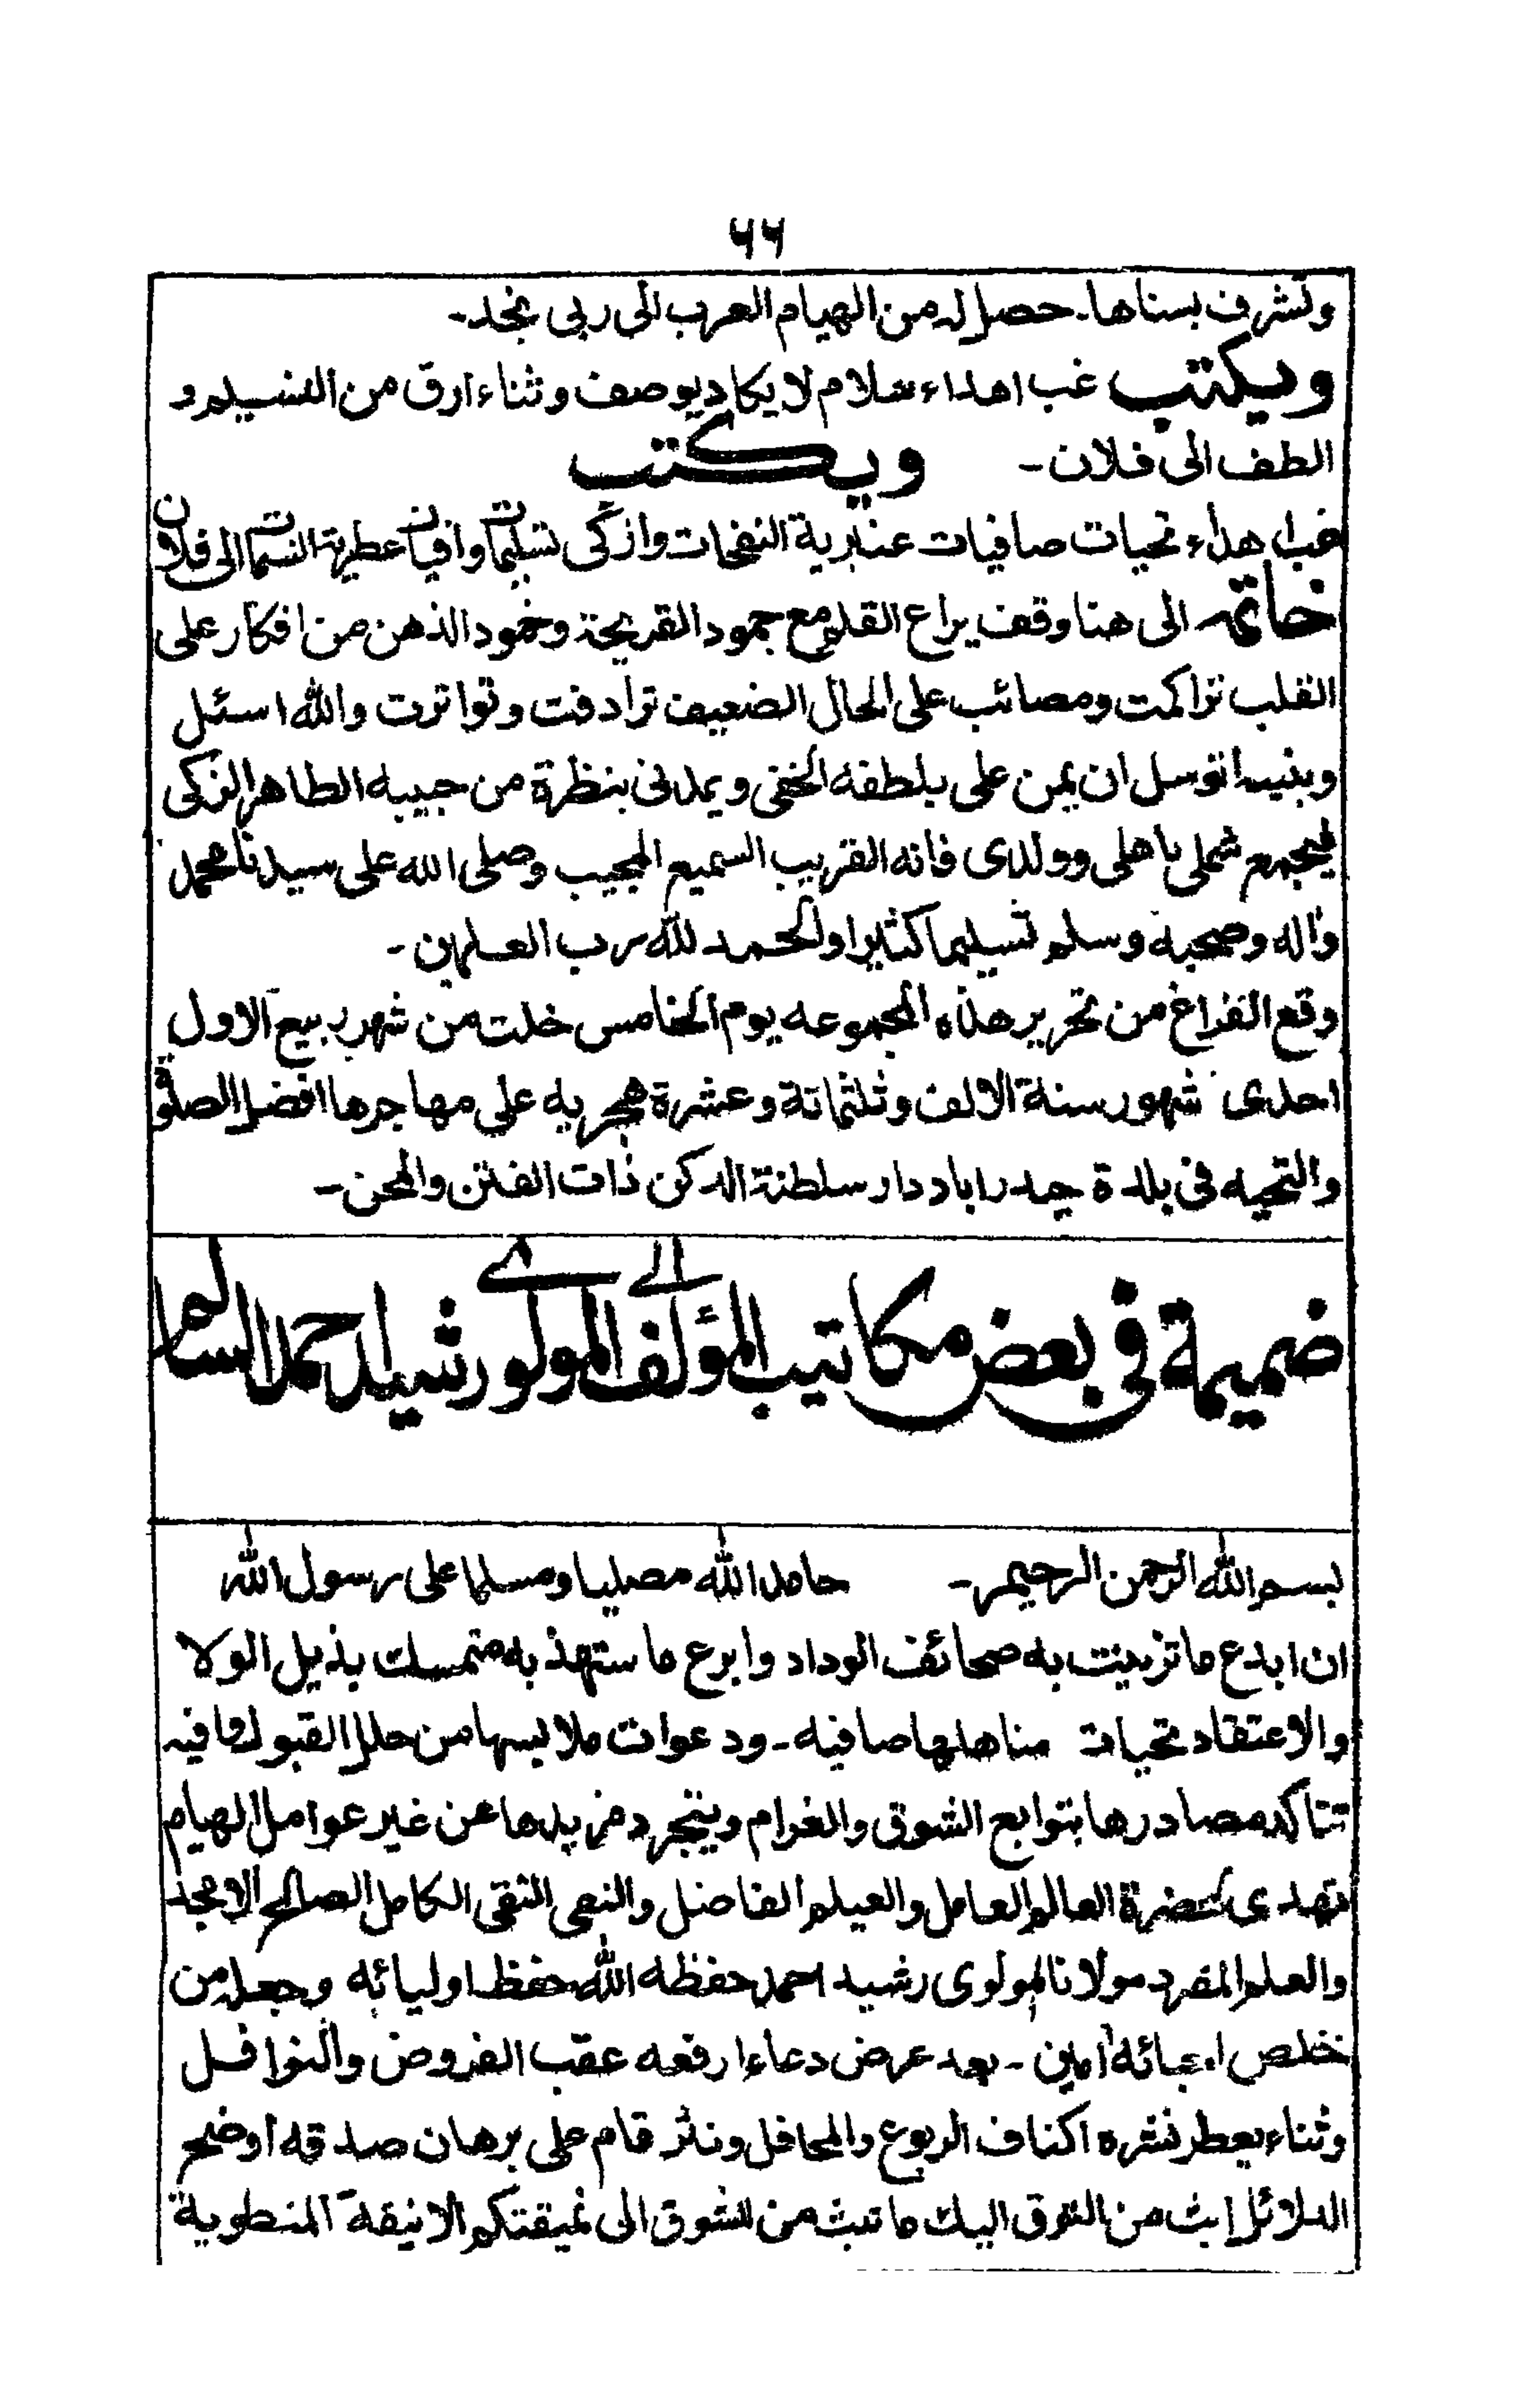 ۶۶
وتشرف بسناها۔ حصل له من الهيام العرب الى ربى نجد۔
ويكتب غب اهداء سلام لا يكاد يوصف وثناء ارق من النسيم و
الطف الى فلان۔ ويكتب
غب اهداء تحيات صافيات عنابرية النفحات وازكى تسليمات وافيات عطرية النسمات الى فلان
خاتمه الى هنا وقف يراع القلم مع جمود القريحة وخمود الذهن من افكار على
القلب تراكمت ومصائب على الحال الضعيف ترادفت وتواترت والله اسئل
وبنبيه اتوسل ان يمن على بلطفه الخفى ويمدنى بنظرة من حبيبه الطاهر الزكى
ليجمع شملى باهلى وولدى فانه القريب السميع المجيب وصلى الله على سيدنا محمد
واله وصحبه وسلم تسليما كثيرا والحمد لله رب العلمين۔
وقع الفراغ من تحرير هذه المجموعه يوم الخامس خلت من شهر ربيع الاول
احدى شهور سنة الالف وثلثمائة وعشرة هجريه على مهاجرها افضل الصلوة
والتحيه فى بلدة حيدراباد دار سلطنة الدكن ذات الفتن والمحن۔
ضميمة فى بعض مكاتيب المؤلف الى المولوى رشيد احمد السالم
بسم الله الرحمن الرحيم۔ حامدا لله مصليا ومسلما على رسول الله
ان ابدع ما تزينت به صحائف الوداد وابرع ما ستهذ به متمسك بذيل الولا
والاعتقاد تحيات مناهلها صافيه۔ ودعوات ملابسها من حلل القبول وافيه
تتاكد مصادرها بتوابع الشوق والغرام ويتجرد مزيدها عن غير عوامل الهيام
تهدى لحضرة العالم العامل والعيلم الفاضل والنقى التقى الكامل الصالح الامجد
والعلم المفرد مولانا المولوى رشيد احمد حفظه الله حفظ اوليائه وجعله من
خلص احبائه امين۔ بعد عرض دعاء ارفعه عقب الفروض والنوافل
وثناء يعطر نشره اكناف الربوع والمحافل ونثر قام على برهان صدقه اوضح
الدلائل ابث من التوق اليك ما تبث من الشوق الى نميقتكم الانيقة المنطوية